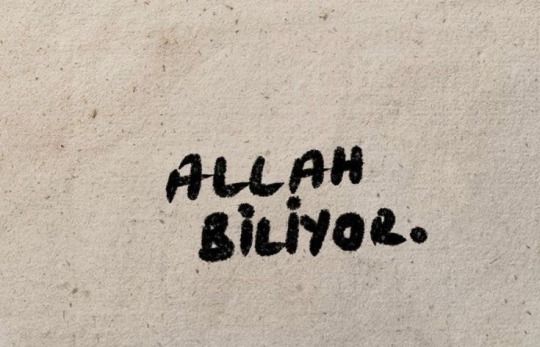 ALLAH
BİLİYOR.